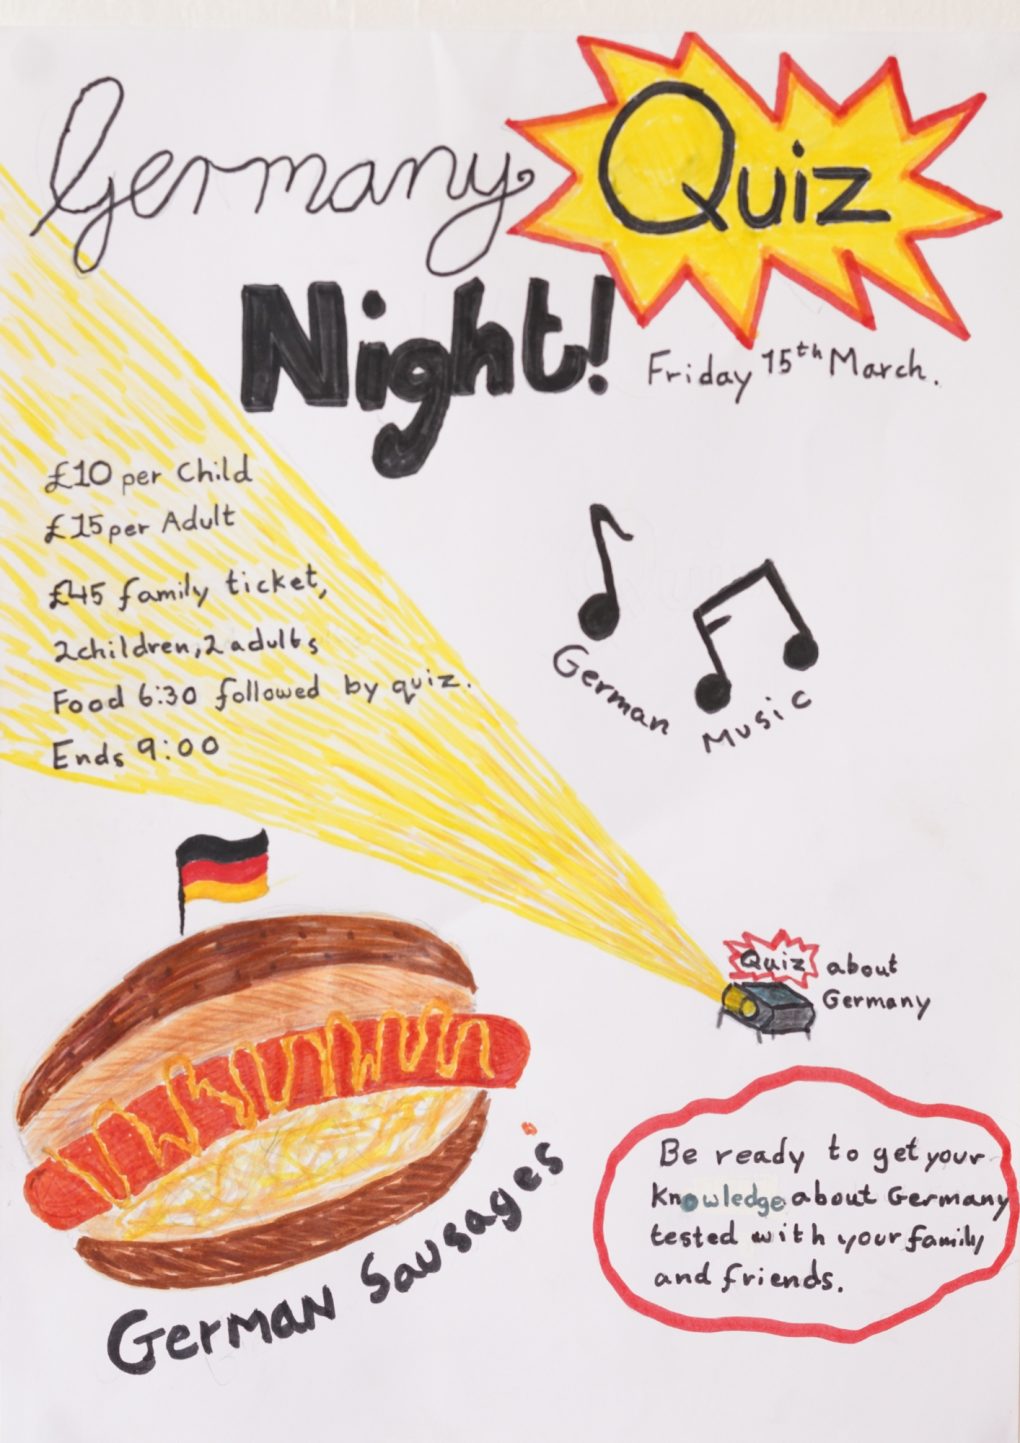 Germany Quiz
Night!
Friday 15th March.
£10 per Child
£15 per Adult
£45 family ticket,
2children, 2 adults
Food 6:30 followed by quiz.
Ends 9:00
German Music
Quiz about
Germany
German Sausages
Be ready to get your
knowledge about Germany
tested with your family
and friends.